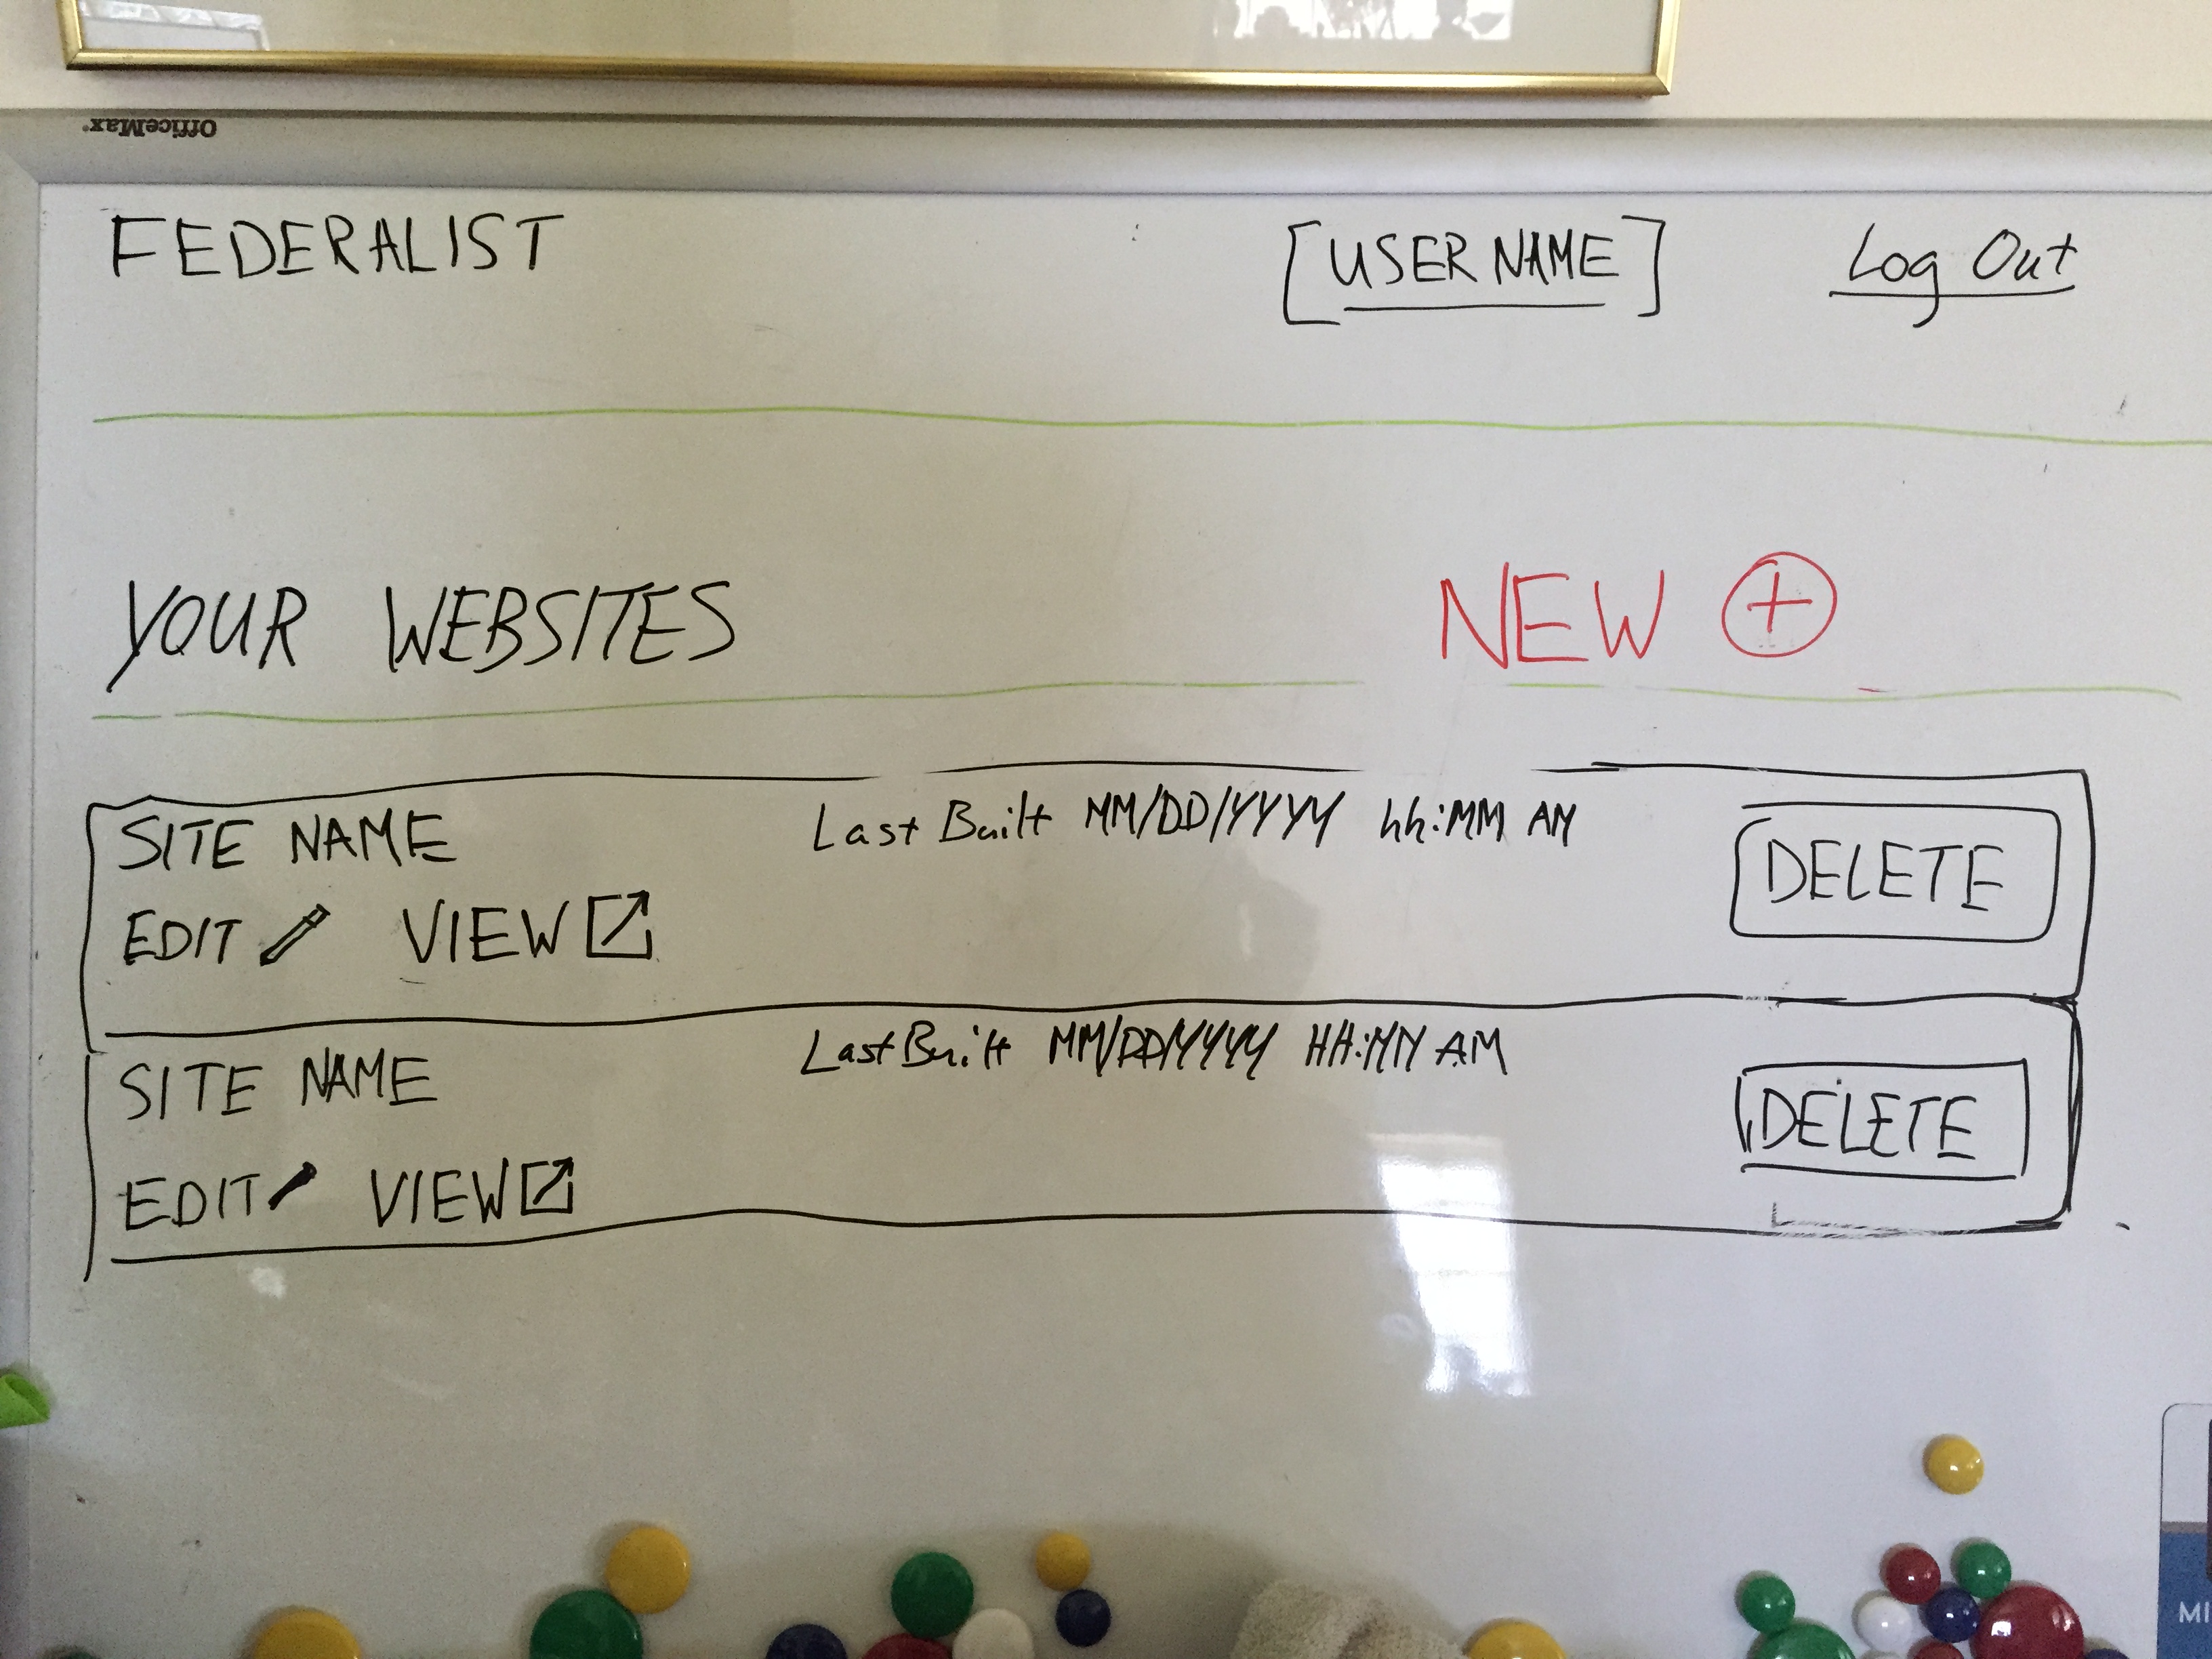 OfficeMax
FEDERALIST [USER NAME] Log Out
YOUR WEBSITES NEW +
SITE NAME Last Built MM/DD/YYYY hh:MM AM DELETE
EDIT VIEW
SITE NAME Last Built MM/DD/YYYY HH:MM AM DELETE
EDIT VIEW
MI